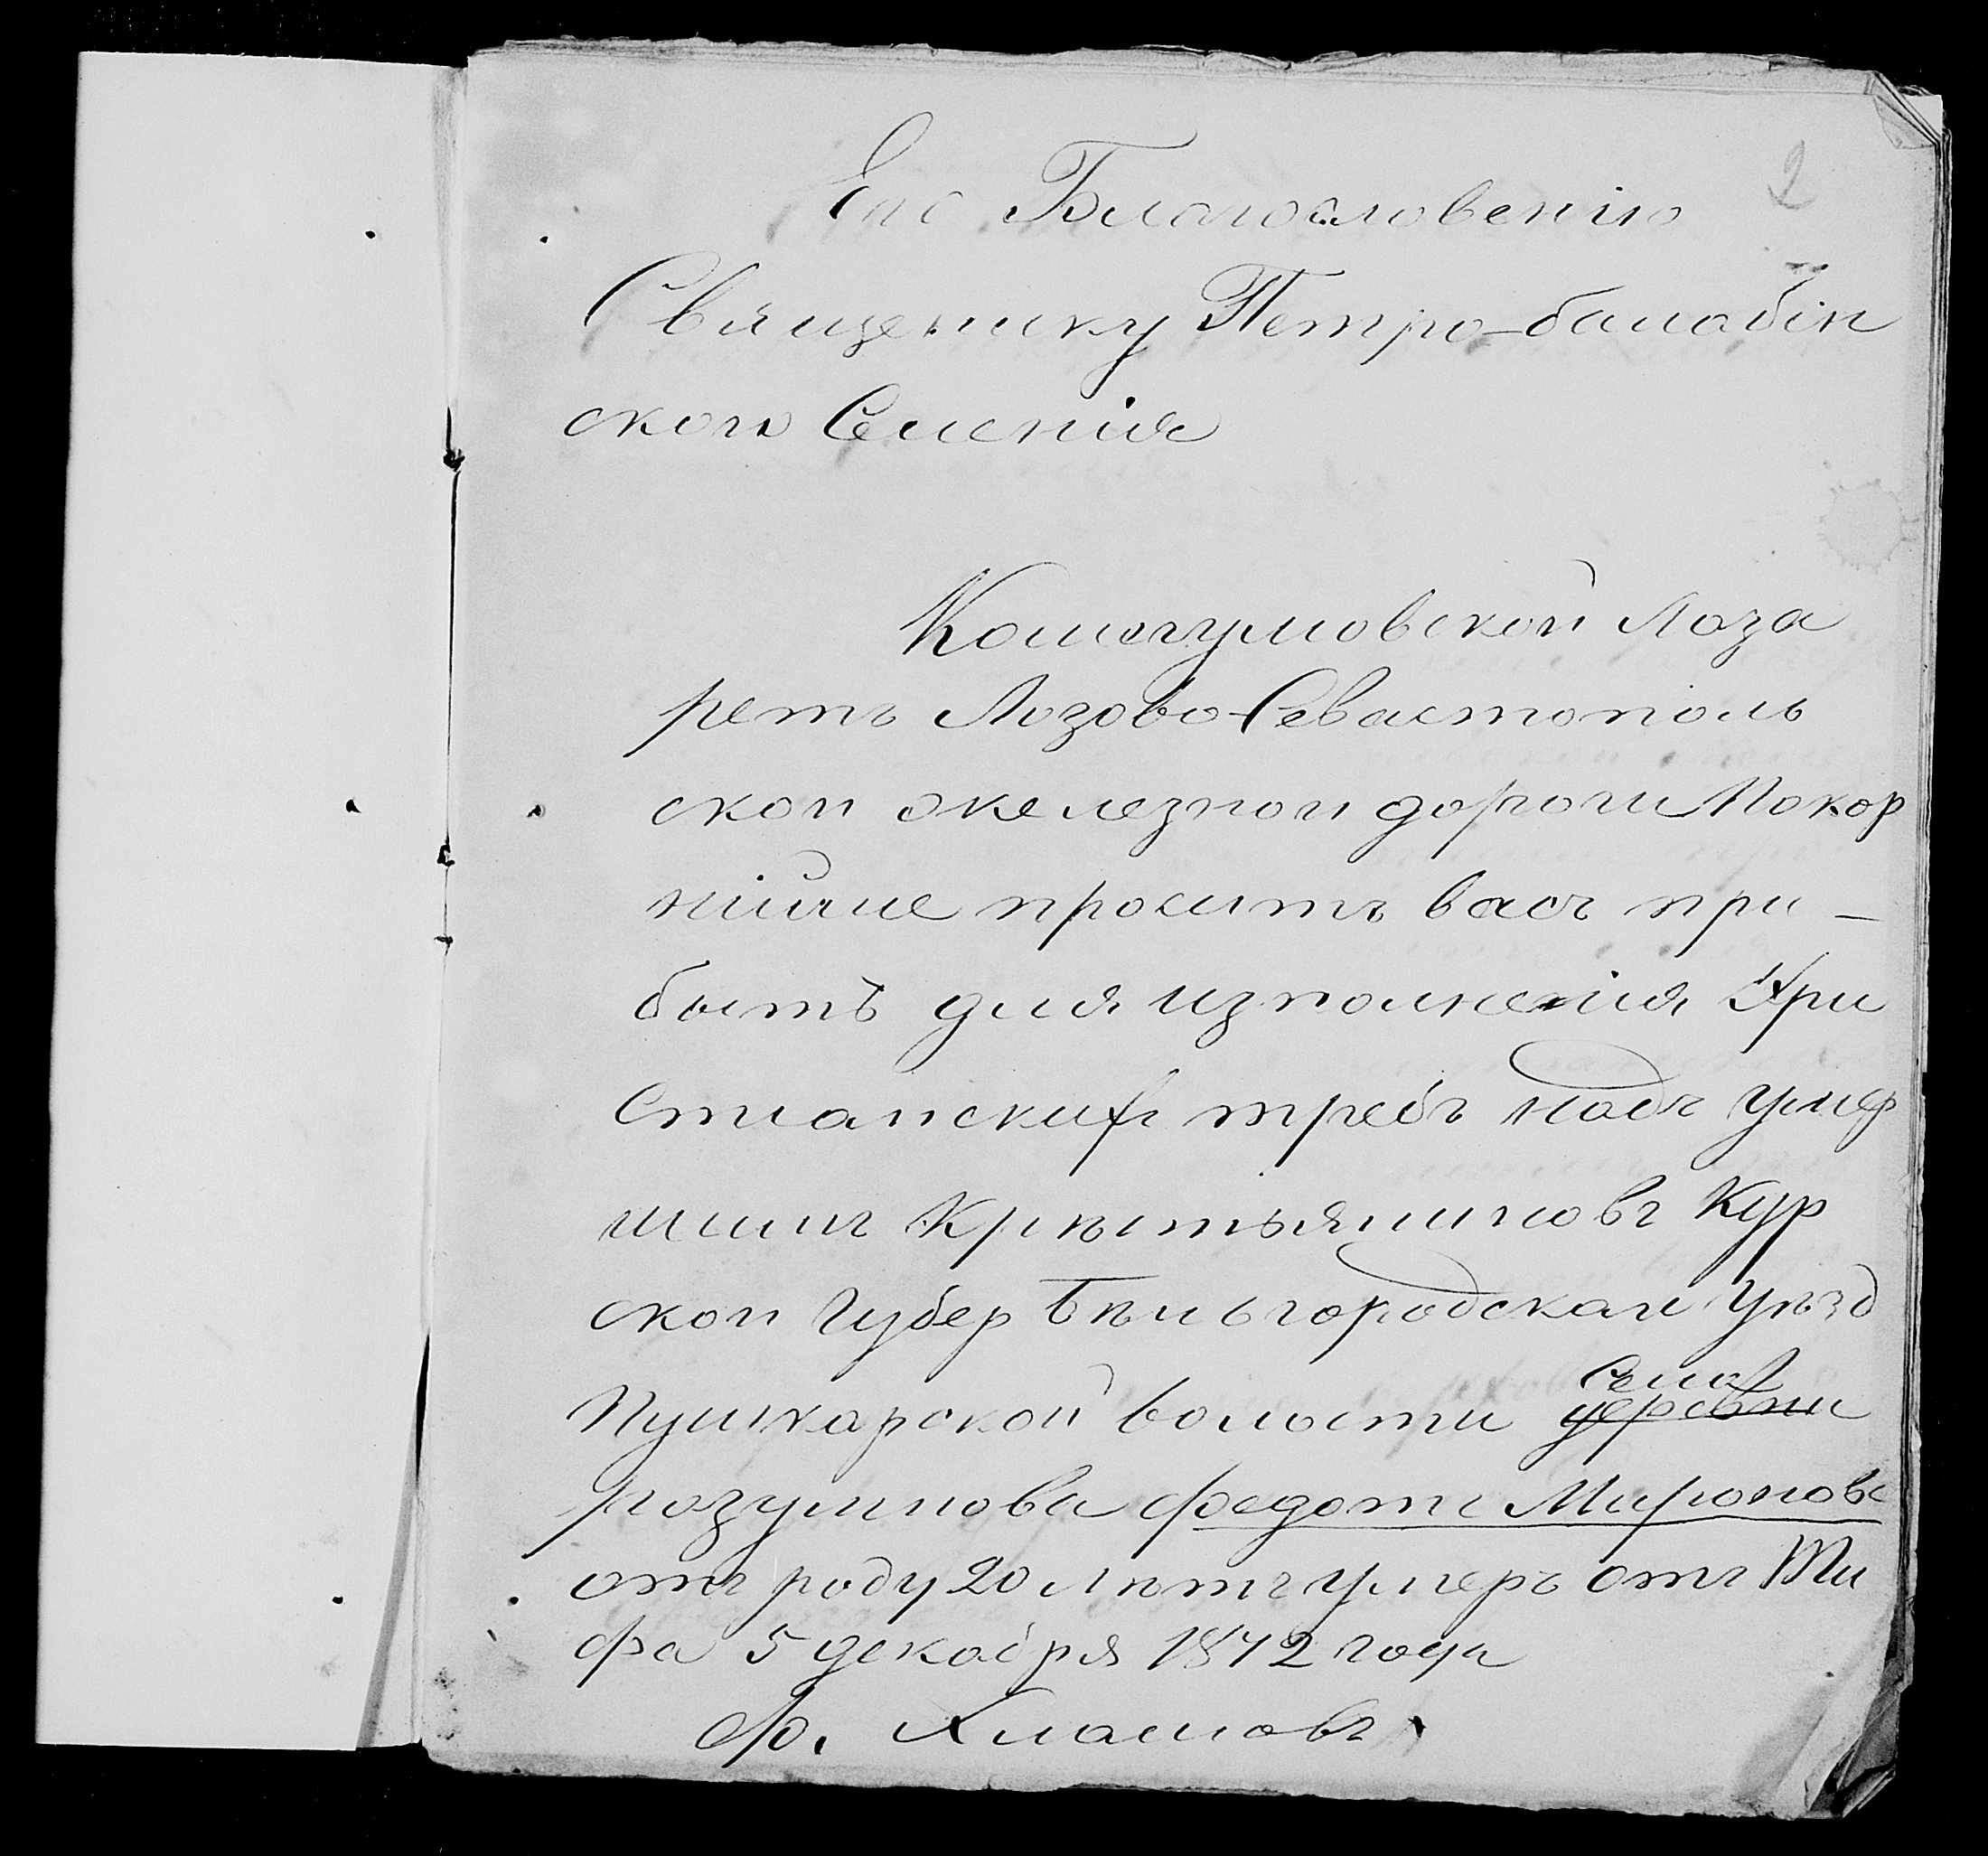 2
Его Благословенію
Священику Петро-балабін
ского Селенія
Комогумовской Лаза
ретъ Лозово-Севастополь
ской железной дороги Покор
нійше проситъ васъ при-
быть для изполненія Хри
стианскихъ требъ надъ умер
шимъ Крѣстьяниновъ Кур
ской Губер Бѣльгородскаи Уѣзд
Пушкарской волости деревни
Села
розумнова федотъ Мироновъ
отъ роду 20 лѣтъ умеръ отъ Ти
фа 5 декабря 1872 года
Ф.